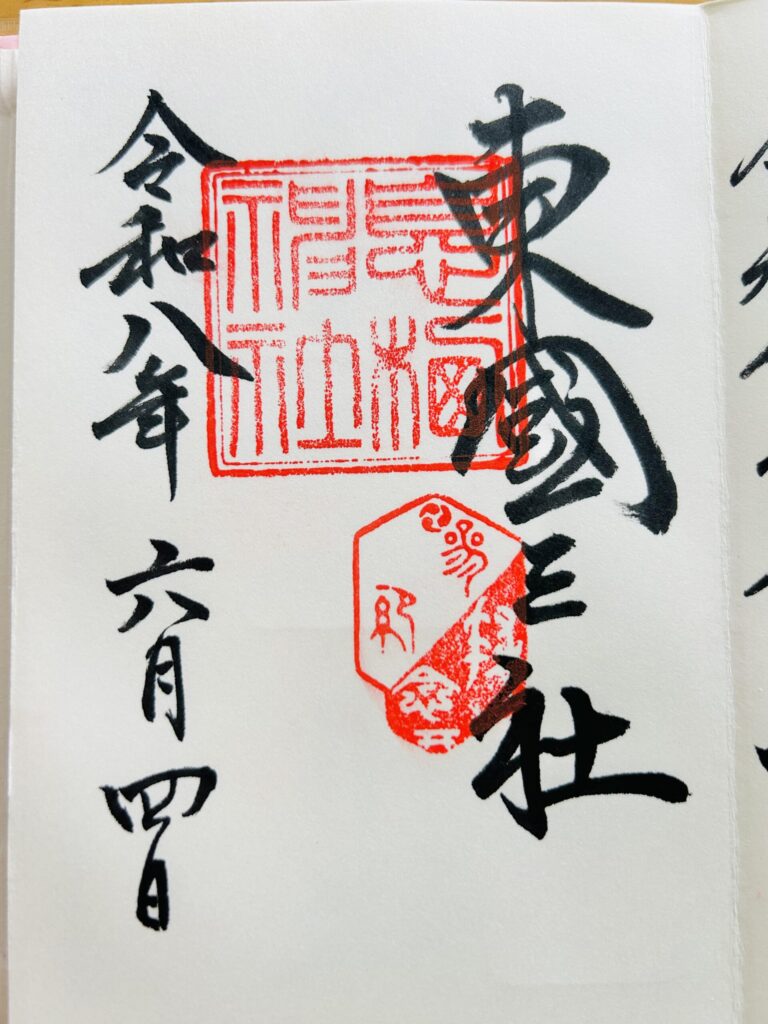 東國三社
息栖神社
令和八年 六月四日